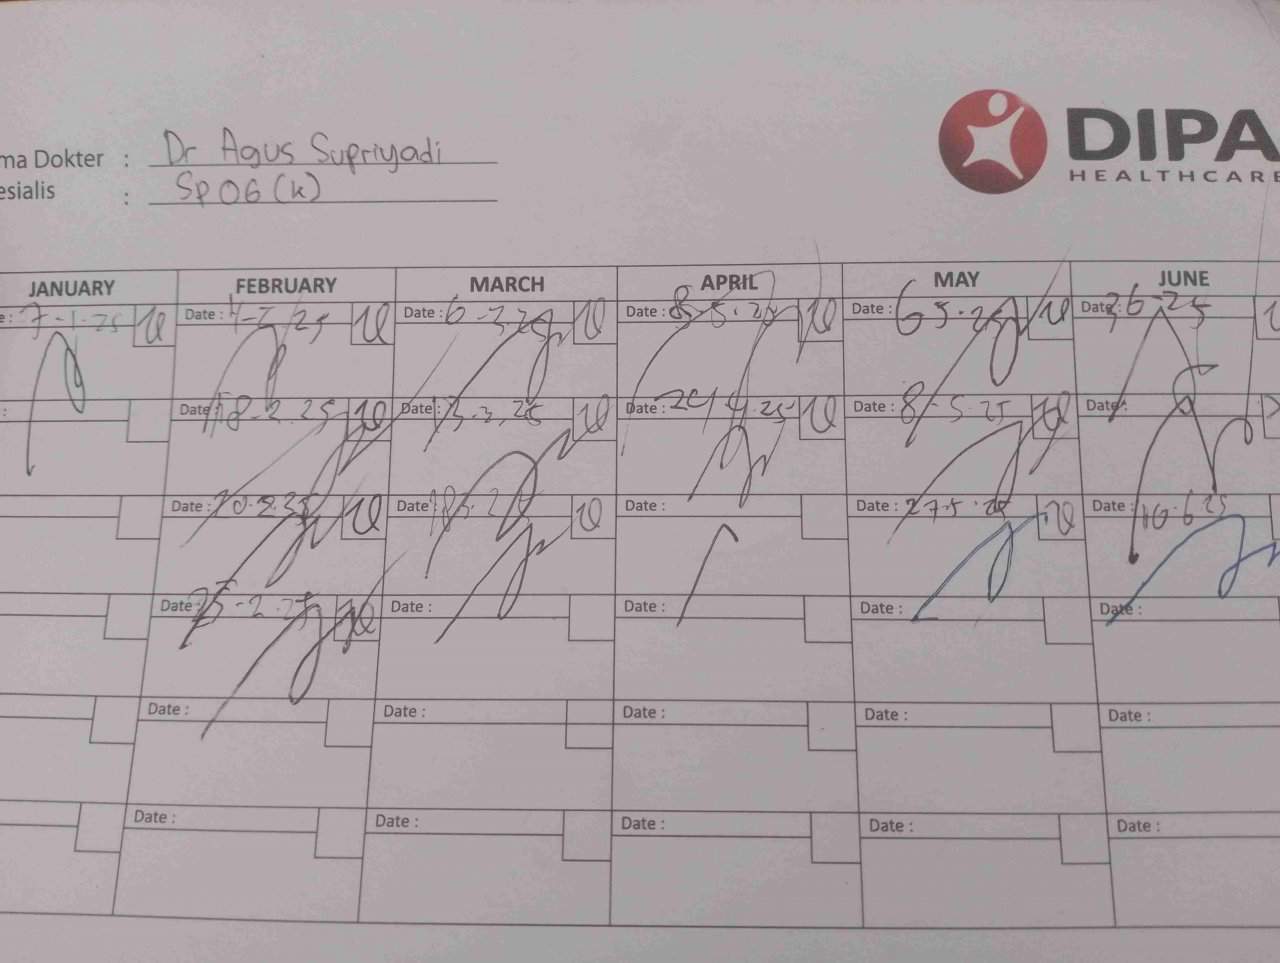 ma Dokter : Dr Agus Supriyadi
esialis : SpOG (K)
DIPA
HEALTHCARE
JANUARY FEBRUARY MARCH APRIL MAY JUNE
e: 7-1-25 Date: 4-2-25 Date: 6-3-25 Date: Date: 6 5.25 Date: 3 6-25
: Date: 18-2.25 Date: 13-3.25 Date: 24 4.25 Date: 8-5.25 Date:
Date: 20.2.25 Date: 18. Date: Date: 27.5.25 Date: 10.6 25
Date: 25-2.25 Date: Date: Date: Date:
Date: Date: Date: Date: Date:
Date: Date: Date: Date: Date: